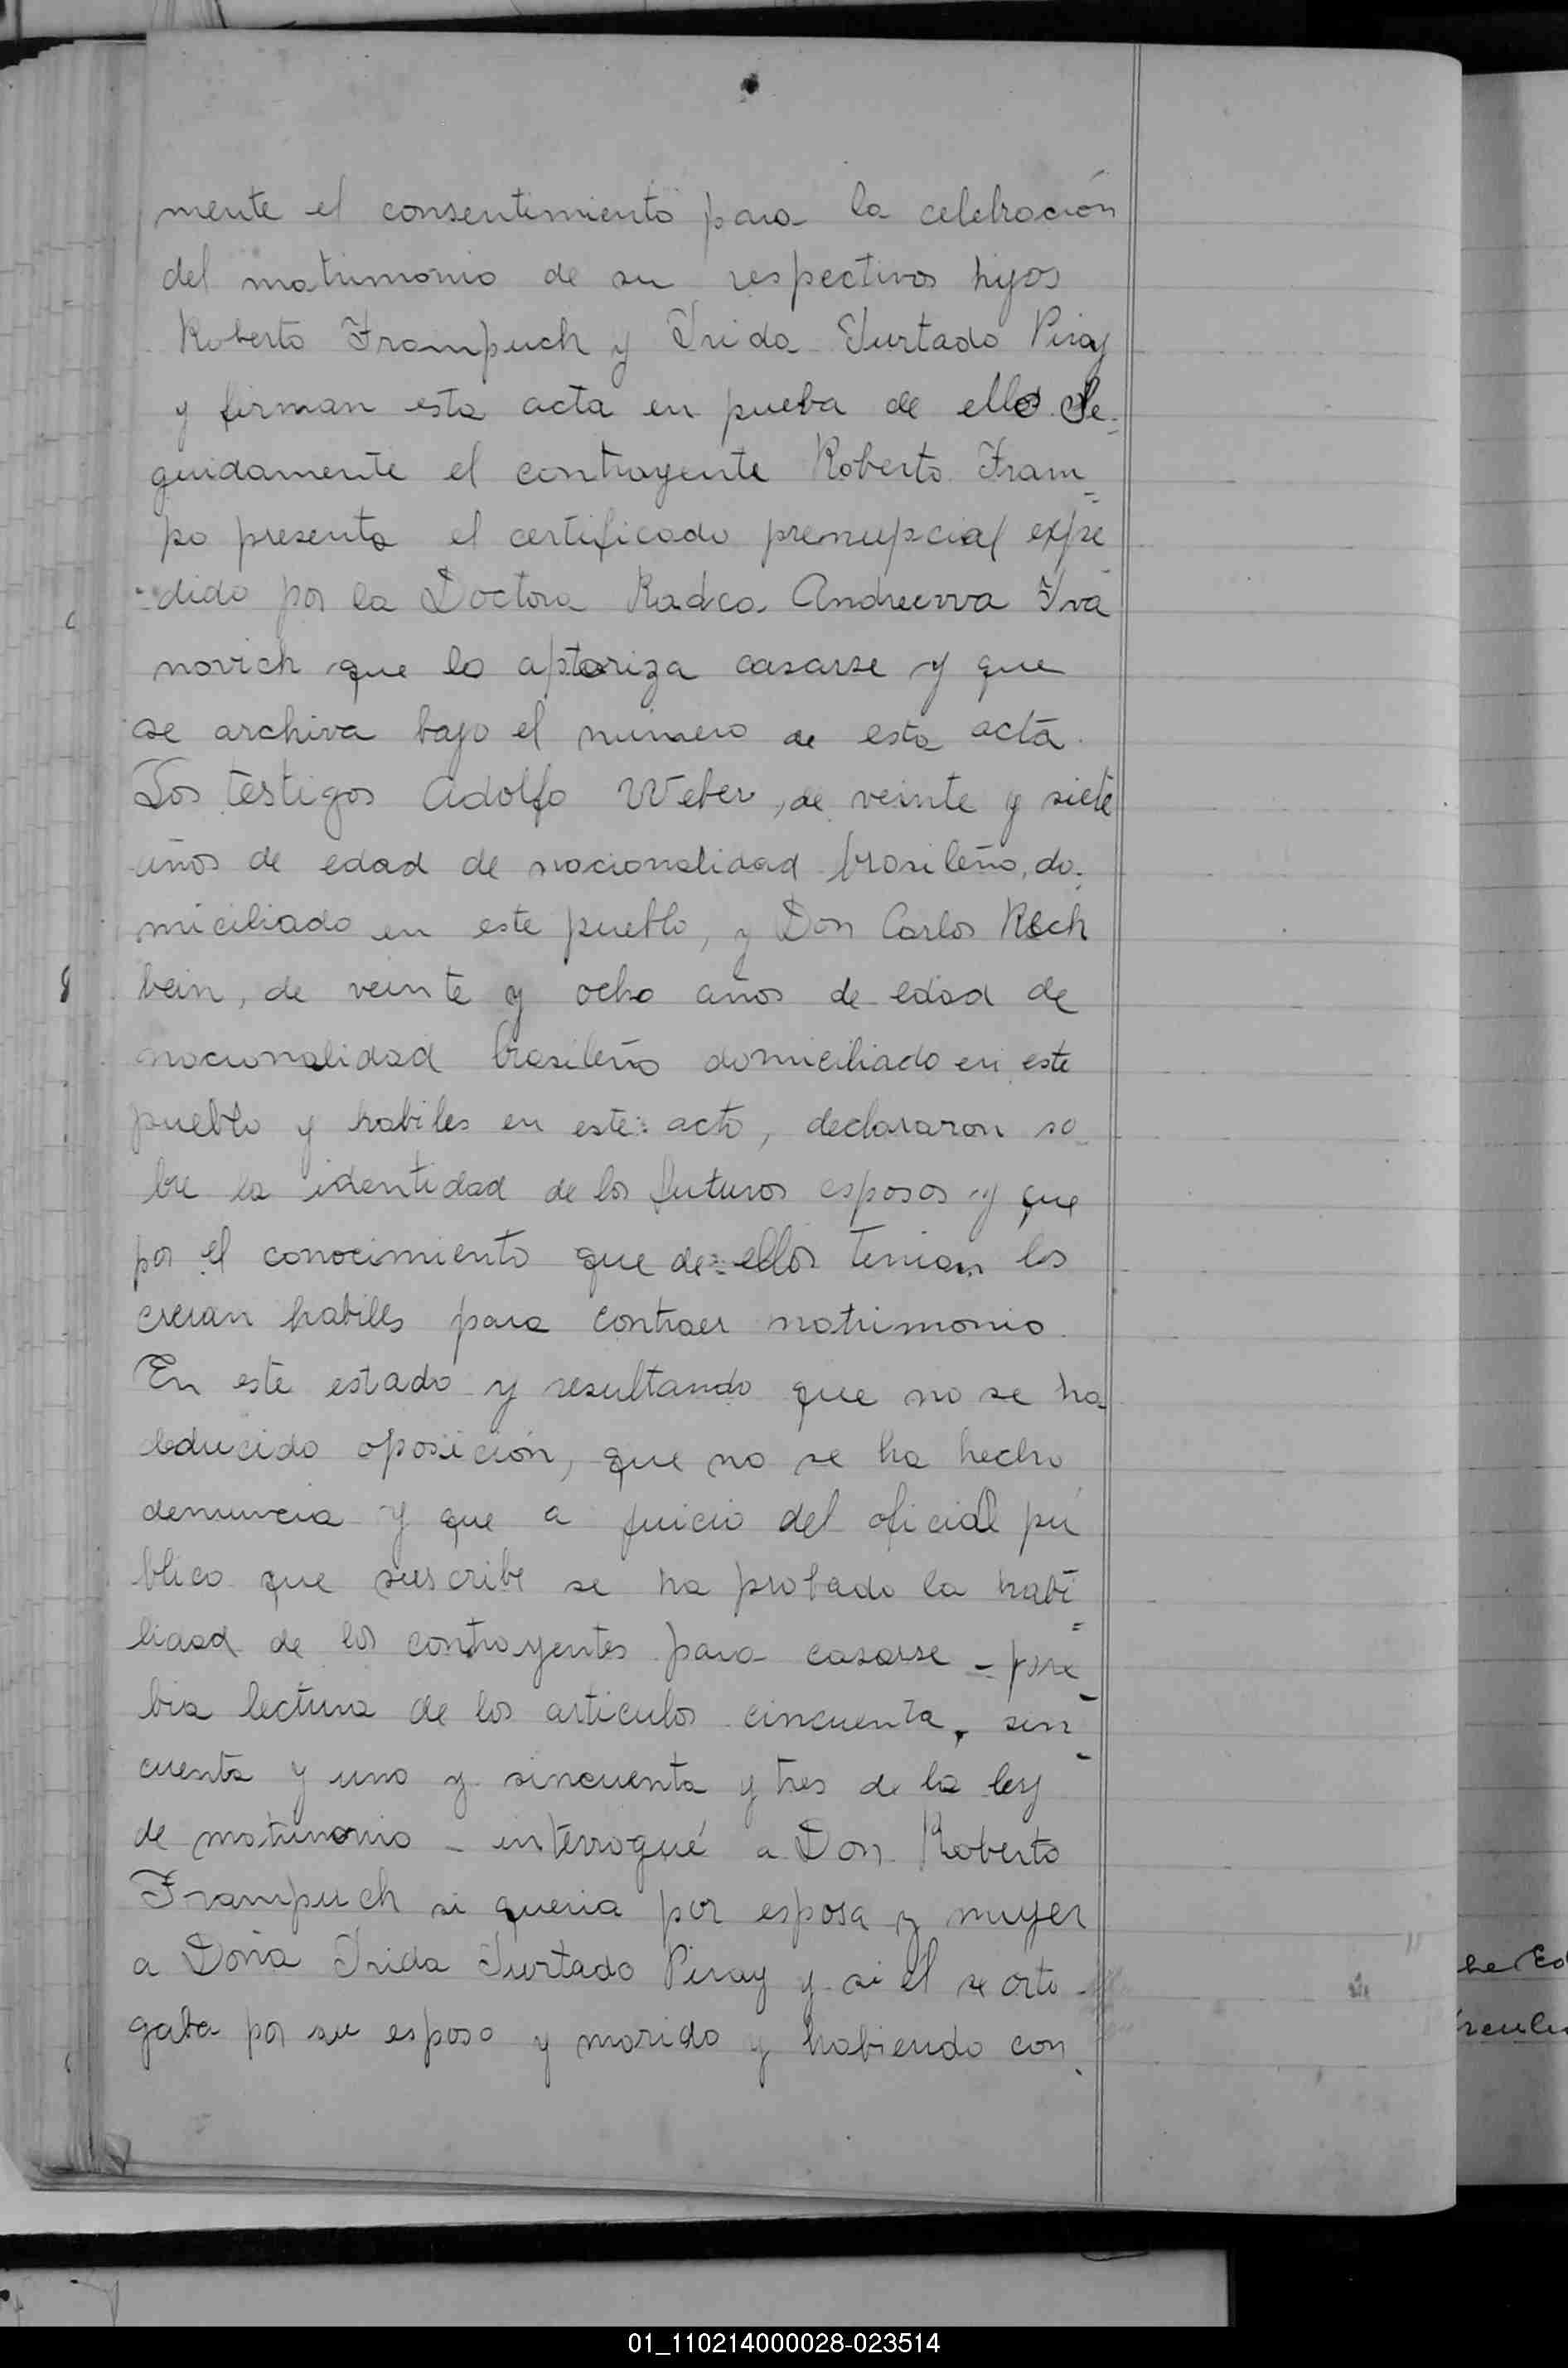 mente el consentimiento para la celebración
del matrimonio de su respectivos hijos
Roberto Frampuch y Frida Furtado Piray
y firman esta acta en pueba de ello Se-
guidamente el contrayente Roberto Fram=
po presenta el certificado prenupcial expe
-dido por la Doctora Radca Andreevva Iva
novich que lo aptoriza casarse y que
se archiva bajo el número de esta acta.
Los testigos Adolfo Weber, de veinte y siete
años de edad de nacionalidad brasileño, do-
miciliado en este pueblo, y Don Carlos Rech
bein, de veinte y ocho años de edad de
nacionalidad brasileño domiciliado en este
pueblo y habiles en este acto, declararon so
bre la identidad de los futuros esposos y que
por el conocimiento que de ellos tenian los
creian habiles para contraer matrimonio.
En este estado y resultando que no se ha
deducido oposición, que no se ha hecho
denuncia y que a juicio del oficial pú
blico que suscribe se ha probado la habi
=lidad de los contrayentes para casarse - pre
bia lectura de los articulos cincuenta, sin-
cuenta y uno y sincuenta y tres de la ley
de matrimonio - interrogué a Don Roberto
Frampuch si queria por esposa y mujer
a Doña Frida Furtado Piray y si el se orto-
gaba por su esposo y marido y habiendo con
he
01_110214000028-023514